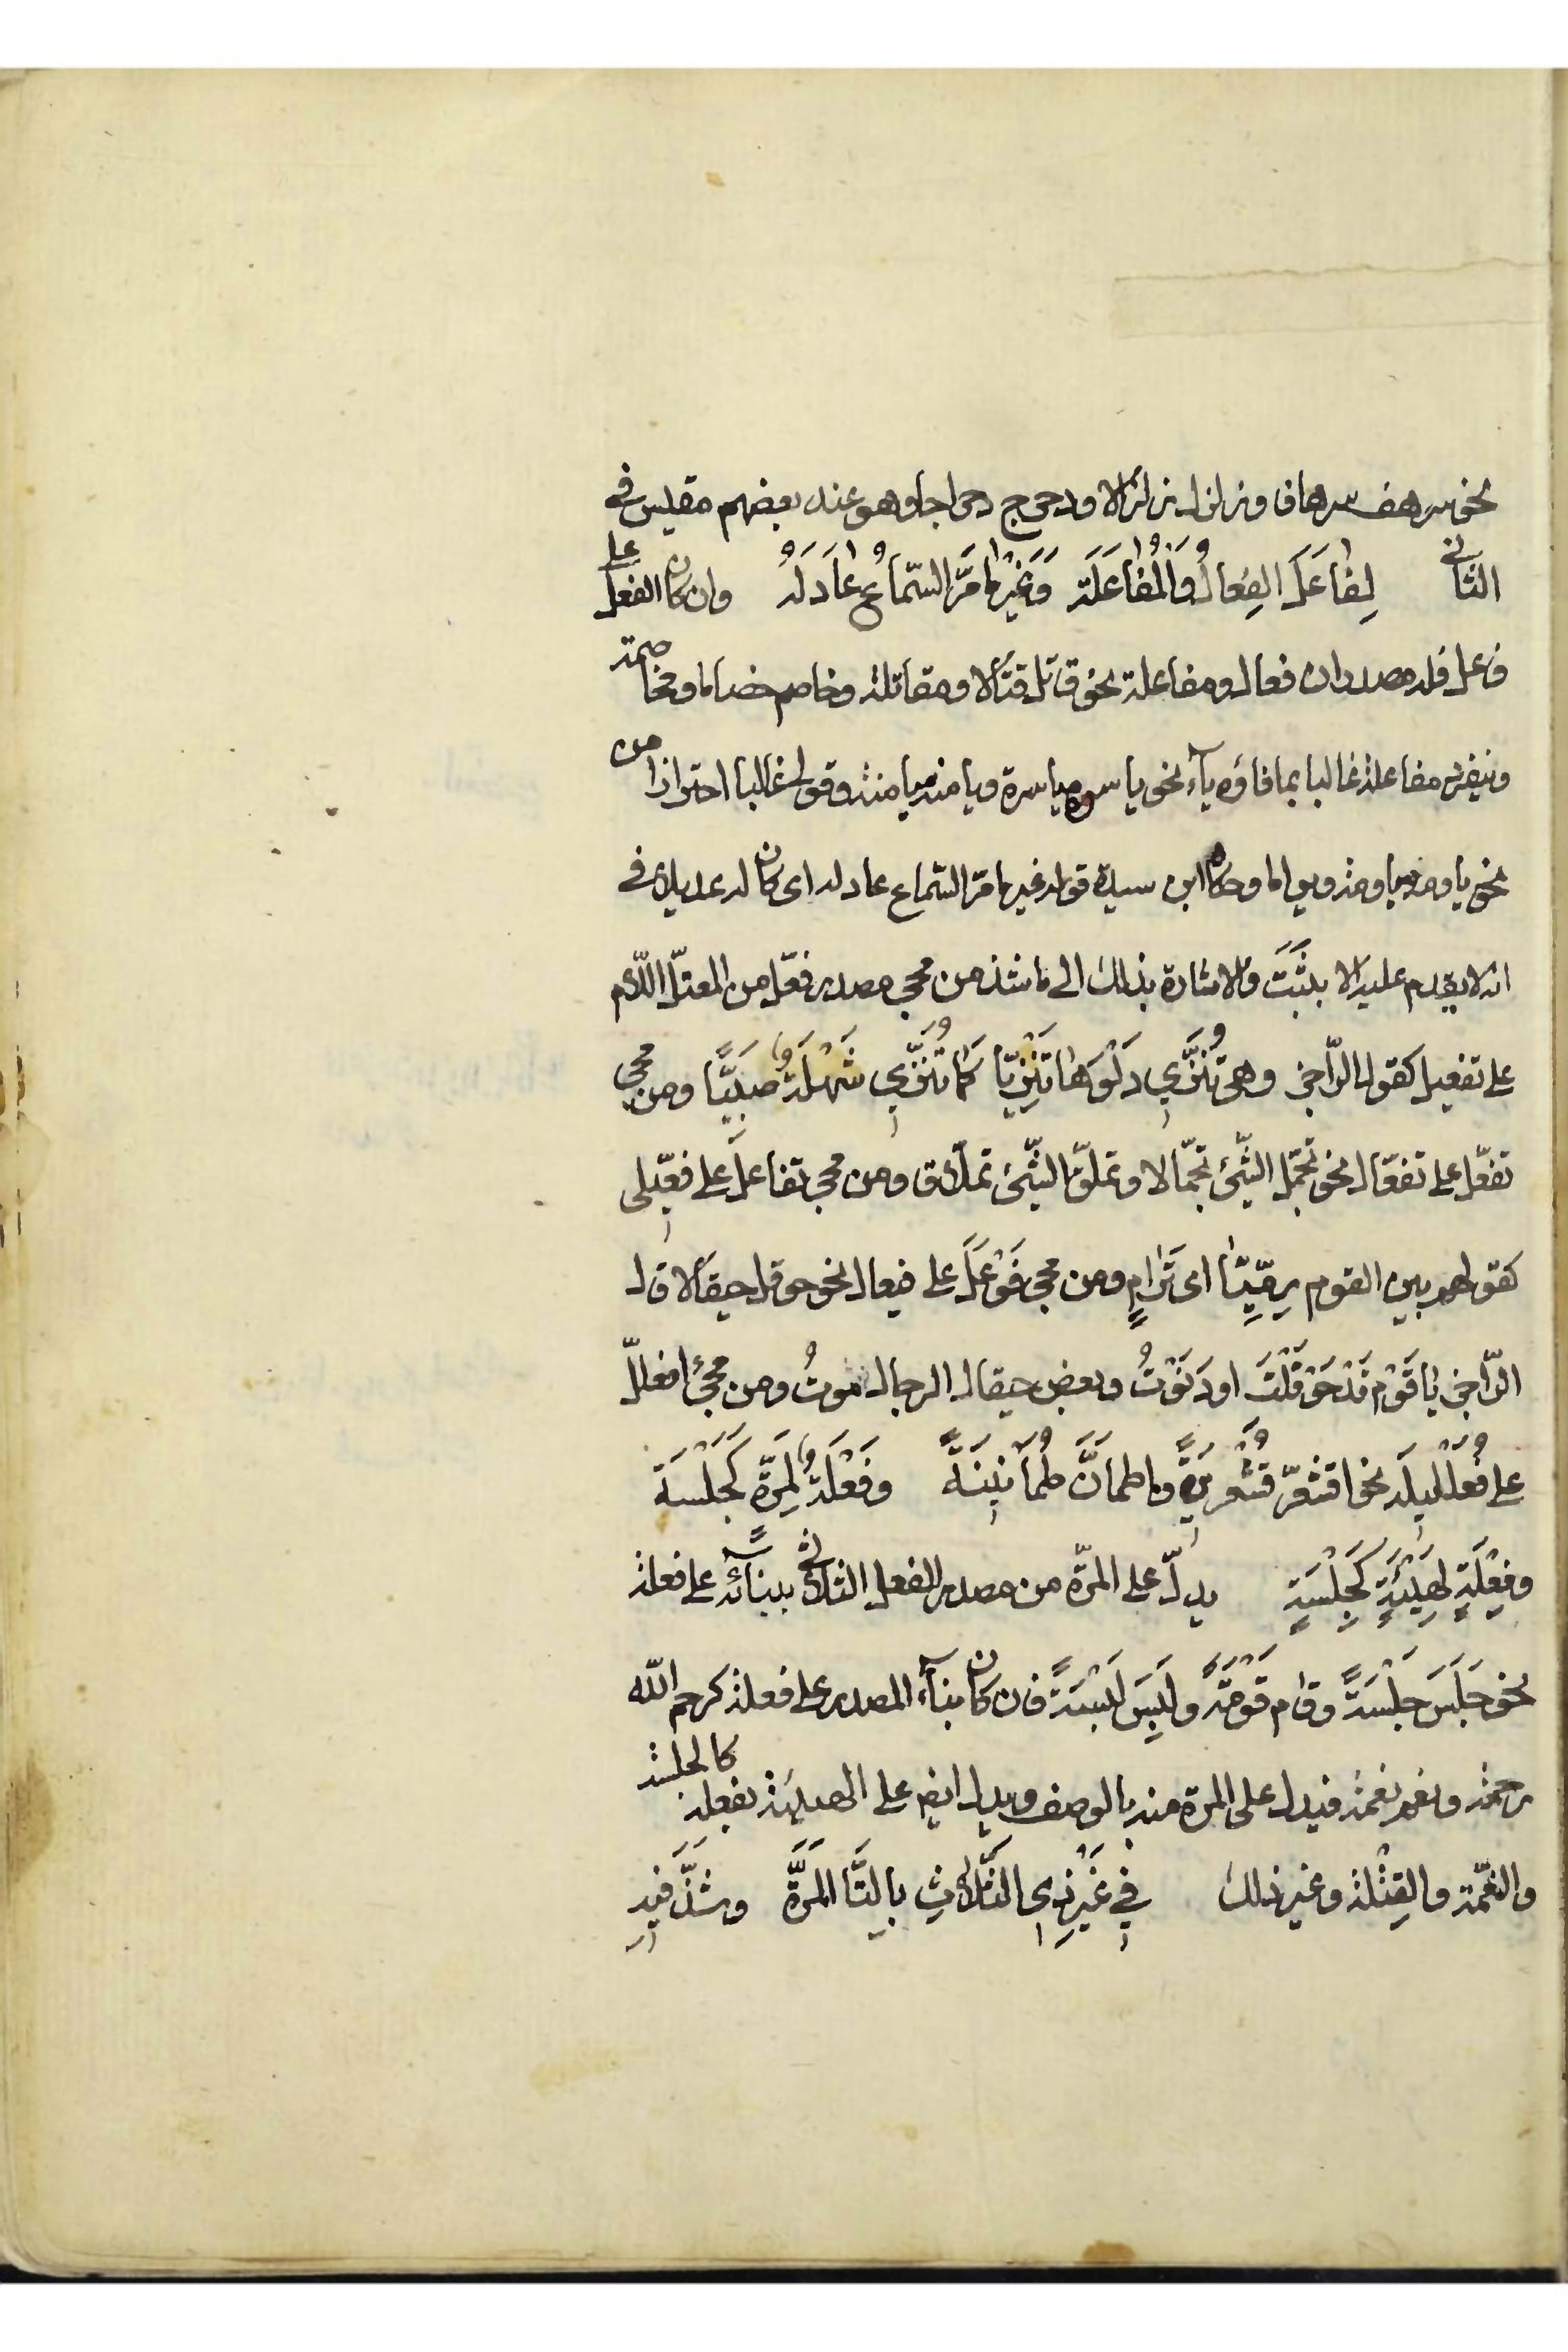 نحو سرهف سرهاف وزلزل زلزالا ودحرج دحراجا وهو عند بعضهم مقيس في
الثاني لِفَاعَلَ الفِعَالُ وَالْمُفَاعَلَة وَغَيْرُ مَا مَرَّ السَّمَاعُ عَادَلَهُ وان كان الفعل على
فاعل فله مصدران فعال ومفاعلة نحو قاتل قتالا ومقاتلة وخاصم خصاما ومخاصمة
وينفرد مفاعلة غالبا بما فاؤه ياء نحو ياسره مياسرة ويامنه ميامنة وقولي غالبا احترازا من
نحو ياومه مياومة ويواما وحكاه ابن سيدة قوله غير ما مرّ السّماع عادله اى كان له عديلا في
انه لا يقدم عليه الا بِثَبَتَ والاشارة بذلك الى ما شذ من مجى مصدر فعّل من المعتلّ اللّام
على تفعيل كقول الرّاجز وهى تُنَزِّي دَلْوَهَا تَنْزِيّا كَمَا تُنَزِّي شَهْلَةٌ صَبِيًّا ومن مجى
تفعّل على تفعّال نحو تجمّل الشّئ تجمّالا وتملّق الشّئ تملّاق ومن مجى تفاعل على فعّيلى
كقولهم بين القوم رِمِّيَّا اى تَرَامٍ ومن مجى فَوْعَلَ على فيعال نحو حوقل حيقالا قال
الرّاجز يَا قَوْمِ قَدْ حَوْقَلْتَ او دَنَوْتُ وبعض حيقال الرجال موتُ ومن مجئ افعللّ
على فُعَلْلِيلَة نحو اقشعرّ قُشَعْرِيرَةً واطمأنَّ طُمَأْنِينَةً وفَعْلَةٌ لِمَرَّةٍ كَجَلْسَة
وفِعْلَةٍ لِهَيْئَةٍ كَجِلْسَةٍ يدلّ على المرّة من مصدر الفعل الثلاثي ببنائه على فعلة
نحو جَلَسَ جَلْسَةً وقام قَوْمَةً ولَبِسَ لَبْسَةً فان كان بناء المصدر على فعلة كرحم الله
رحمة ونعم نعمة فيدل على المرة منه بالوصف ويدل ايضم على الهيئة بفعلة كالجلسة
والنعّمة والقِتْلة وغير ذلك في غَيْرِ ذِي الثَّلَاثِ بالتَّا المَرَّة وشَذَّ فيهِ